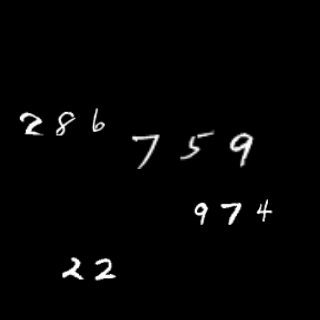 286
759
974
22